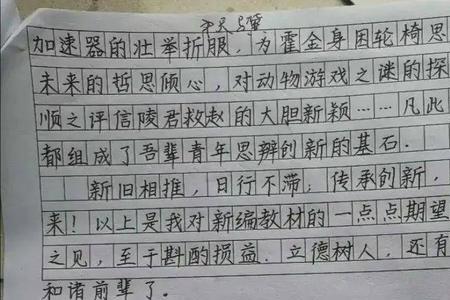 加速器的壮举折服，为霍金身困轮椅思
未来的哲思倾心，对动物游戏之谜的探
顺之评信陵君救赵的大胆新颖……凡此
都组成了吾辈青年思辨创新的基石．
新旧相推，日行不滞；传承创新，
来！以上是我对新编教材的一点点期望
之见，至于斟酌损益．立德树人，还有
和诸前辈了．